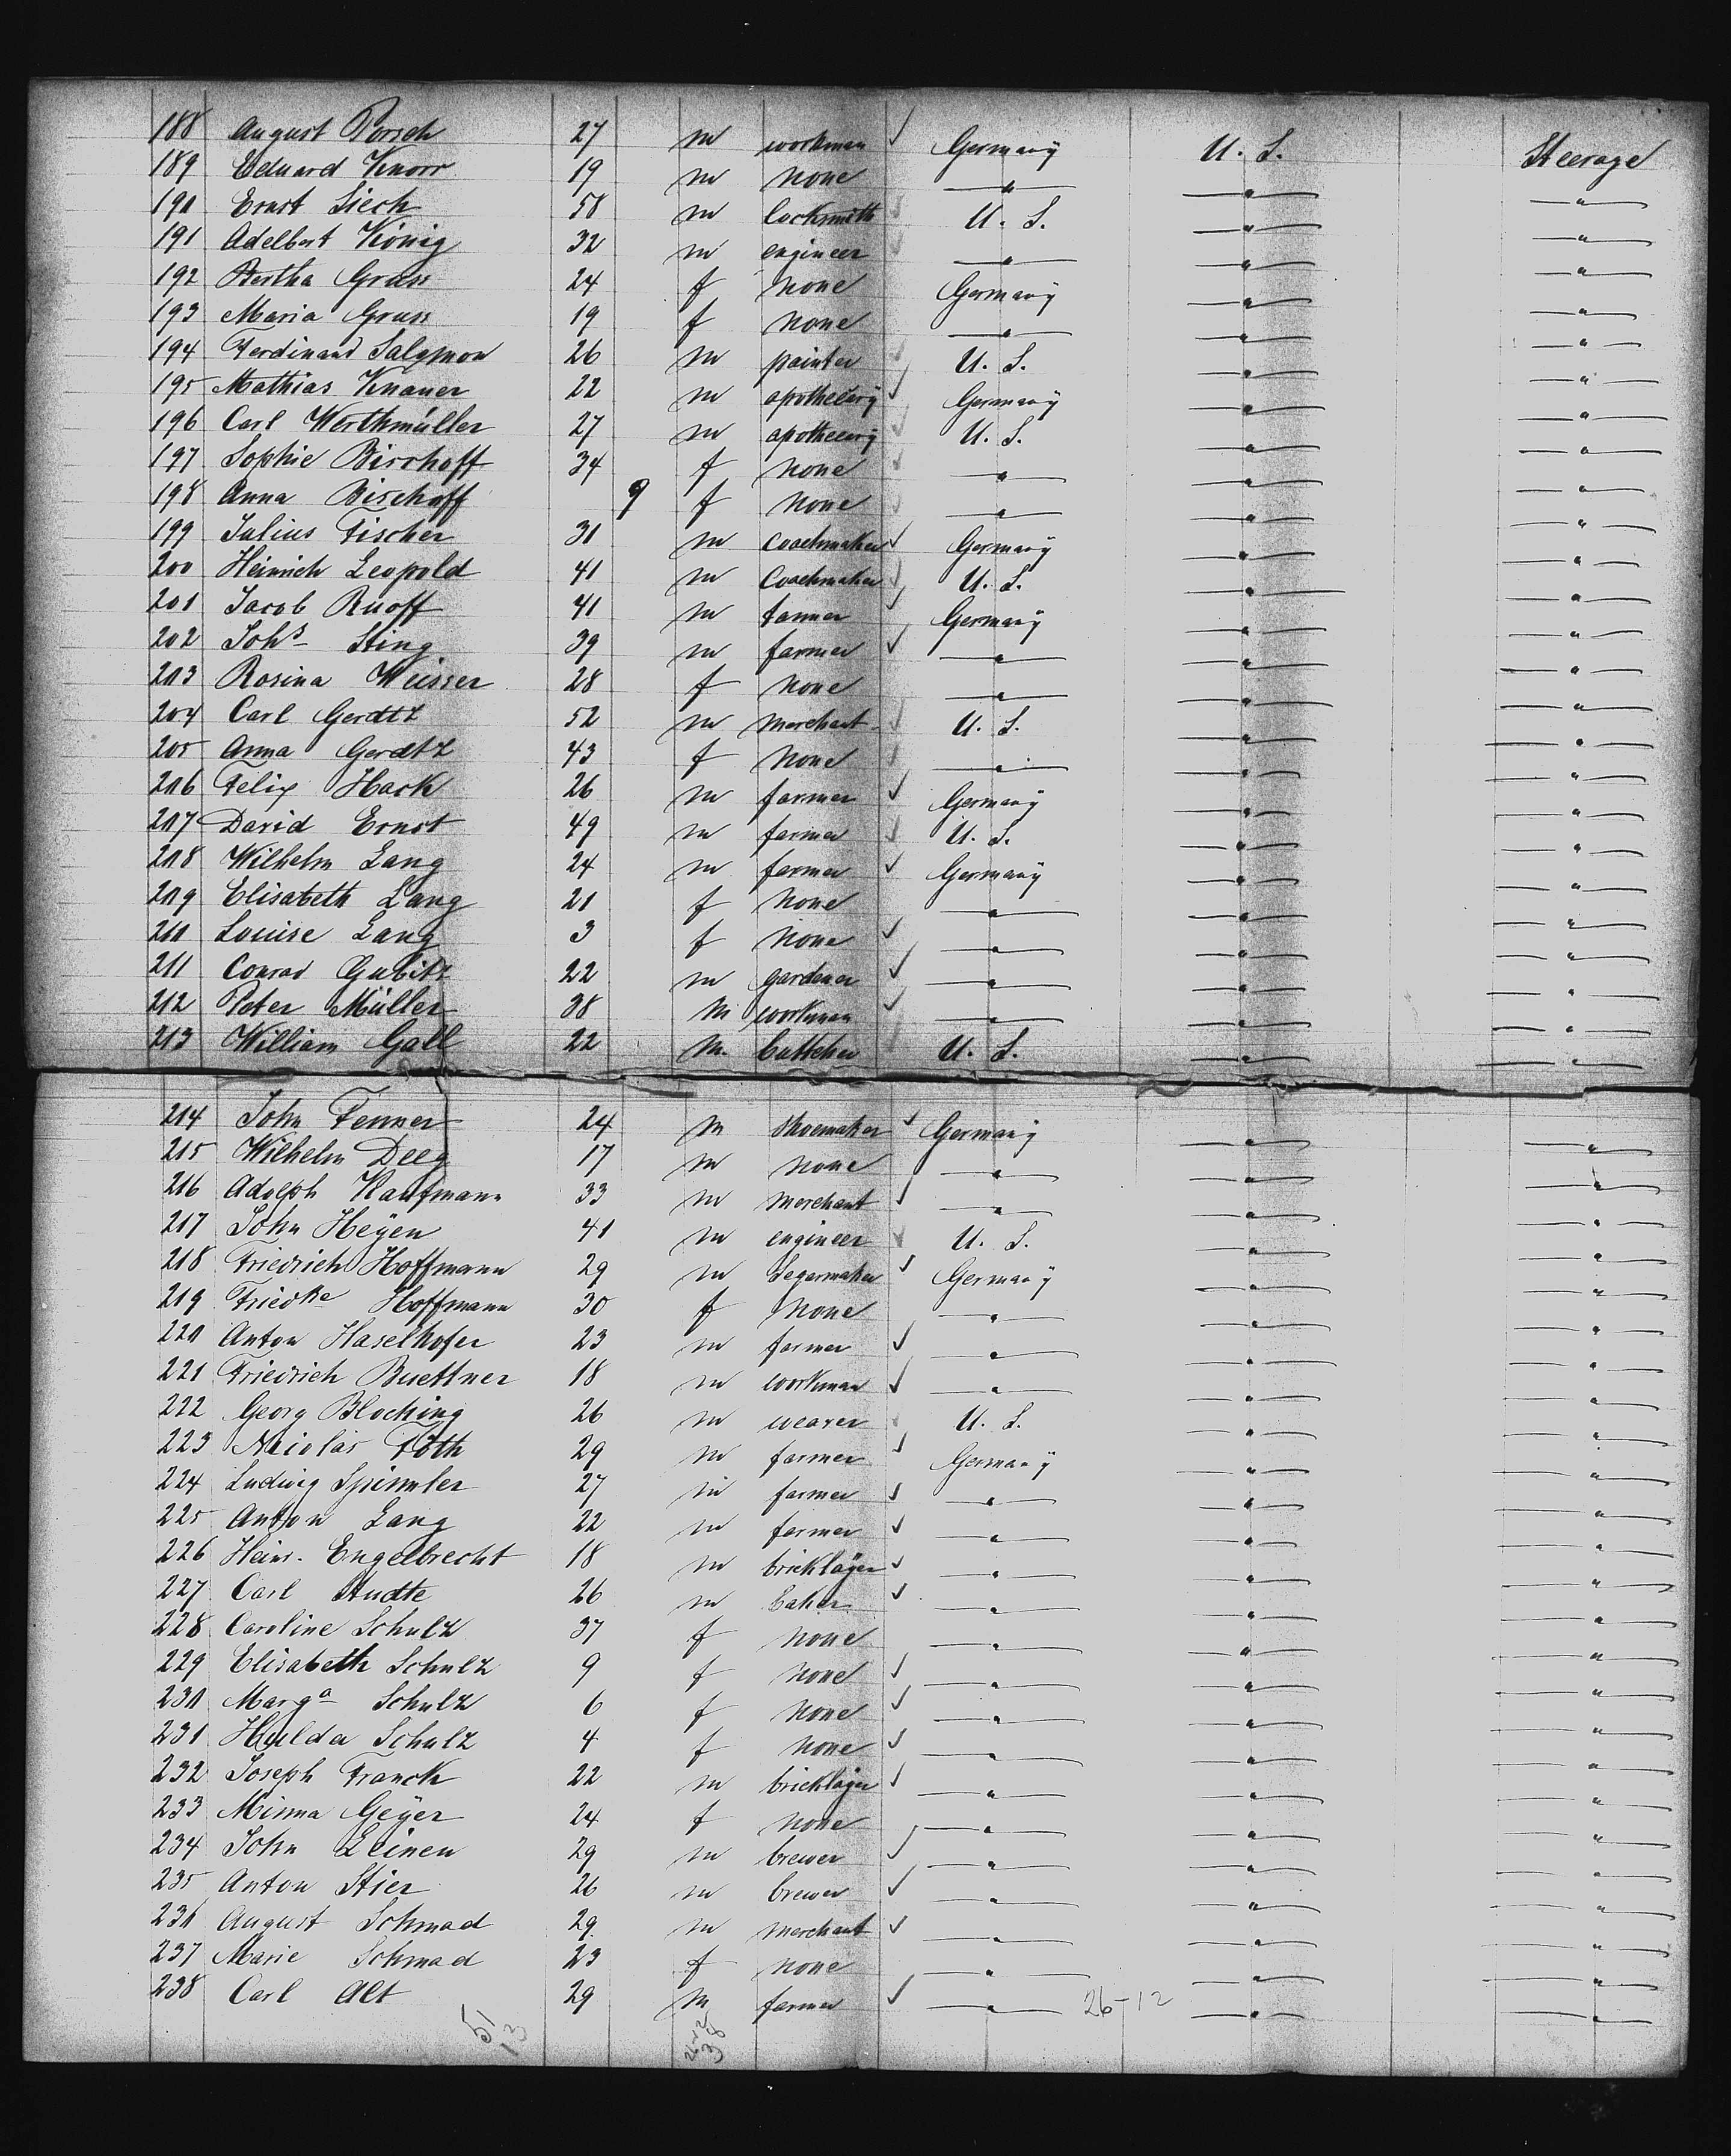 188 August Porsch 27 m workman ✓ Germany U. S. Steerage
189 Eduard Knorr 19 m none " " "
190 Ernst Siech 58 m locksmith ✓ U. S. " "
191 Adelbert König 32 m engineer ✓ " " "
192 Bertha Gruss 24 f none Germany " "
193 Maria Gruss 19 f none " " "
194 Ferdinand Salomon 26 m painter ✓ U. S. " "
195 Mathias Knauer 22 m apothecary ✓ Germany " "
196 Carl Werthmüller 27 m apothecary ✓ U. S. " "
197 Sophie Bischoff 34 f none ✓ " " "
198 Anna Bischoff 9 f none ✓ " " "
199 Julius Fischer 31 m coachmaker ✓ Germany " "
200 Heinrich Leopold 41 m coachmaker ✓ U. S. " "
201 Jacob Ruoff 41 m tanner ✓ Germany " "
202 Johs Sting 39 m farmer ✓ " " "
203 Rosina Weisser 28 f none " " "
204 Carl Gerdtz 52 m merchant ✓ U. S. " "
205 Anna Gerdtz 43 f none ✓ " " "
206 Felix Hack 26 m farmer ✓ Germany " "
207 David Ernst 49 m farmer ✓ U. S. " "
208 Wilhelm Lang 24 m farmer ✓ Germany " "
209 Elisabeth Lang 21 f none " " "
210 Louise Lang 3 f none ✓ " " "
211 Conrad Gubitz 22 m gardener ✓ " " "
212 Peter Müller 38 m workman ✓ " " "
213 William Gall 22 m. buttcher U. S. " "
214 John Fenner 24 m shoemaker ✓ Germany " "
215 Wilhelm Deeg 17 m none " " "
216 Adolph Kaufmann 33 m merchant ✓ " " "
217 John Heÿen 41 m engineer ✓ U. S. " "
218 Friedrich Hoffmann 29 m Segarmaker ✓ Germany " "
219 Friedke Hoffmann 30 f none " " "
220 Anton Haselhofer 23 m farmer ✓ " " "
221 Friedrich Buettner 18 m workman ✓ " " "
222 Georg Bloching 26 m weaver ✓ U. S. " "
223 Nicolas Föth 29 m farmer ✓ Germany " "
224 Ludwig Spinnler 27 m farmer ✓ " " "
225 Anton Lang 22 m farmer ✓ " " "
226 Heinr. Engelbrecht 18 m bricklaÿer ✓ " " "
227 Carl Studte 26 m baker ✓ " " "
228 Caroline Schulz 37 f none " " "
229 Elisabeth Schulz 9 f none ✓ " " "
230 Marga Schulz 6 f none ✓ " " "
231 Hulda Schulz 4 f none ✓ " " "
232 Joseph Franck 22 m bricklaÿer ✓ " " "
233 Minna Geÿer 24 f none " " "
234 John Leinen 29 m brewer ✓ " " "
235 Anton Stier 26 m brewer ✓ " " "
236 August Schmad 29 m merchant ✓ " " "
237 Marie Schmad 23 f none " " "
238 Carl Alt 29 m farmer ✓ " 26-12 " "
51
13
38